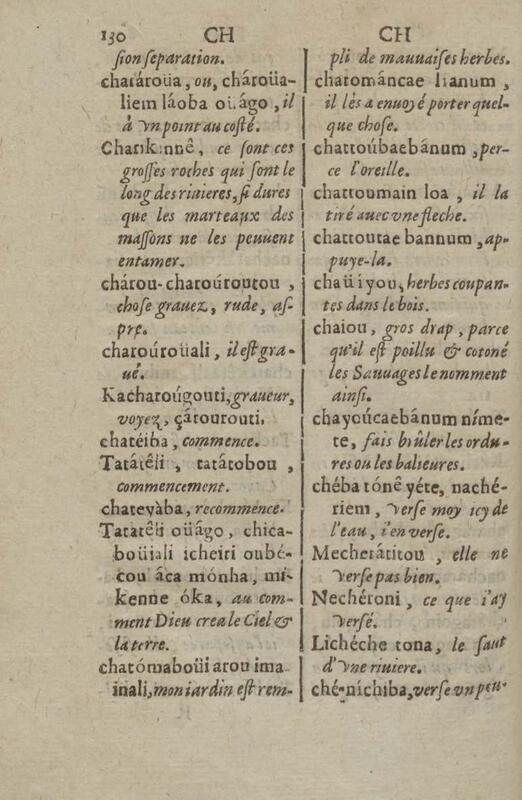 130 CH CH
ſion ſeparation.
chatároüa, ou, chároüa-
liem láoba oüágo, il
à vn point au coſté.
Charikinnê, ce ſont ces
groſſes roches qui ſont le
long des riuieres, ſi dures
que les marteaux des
maſſons ne les peuuent
entamer.
chárou-charoúroutou,
choſe grauez, rude, aſ-
pre.
charoúroüali, il eſt gra-
ué.
Kacharoúgouti, graueur,
voyez, çátourouti.
chatéiba, commence.
Tatátêli, tatátobou,
commencement.
chateyàba, recommence.
Tatatêli oüágo, chica-
boüiali icheiri oubé-
cou áca mónha, mi-
kenne óka, au com-
ment Dieu crea le Ciel &
la terre.
chatómaboüi arou ima
inali, mon iardin eſt rem-
pli de mauuaiſes herbes.
chatomãncae lianum,
il lés a enuoyé porter quel-
que choſe.
chattoúbaebánum, per-
ce l'oreille.
chattoumain loa, il la
tiré auec vne fleche.
chattoutae bannum, ap-
puye-la.
chaüiyou, herbes coupan-
tes dans le bois.
chaiou, gros drap, parce
qu'il eſt poillu & cotoné
les Sauuages le nomment
ainſi.
chayoúcaebánum níme-
te, fais brûler les ordu-
res ou les balieures.
chéba tónê yéte, naché-
riem, verſe moy icy de
l'eau, i'en verſe.
Mecherátitou, elle ne
verſe pas bien.
Nechéroni, ce que i'ay
verſé.
Lichéche tona, le ſaut
d'vne riuiere.
ché-níchiba, verſe vn peu